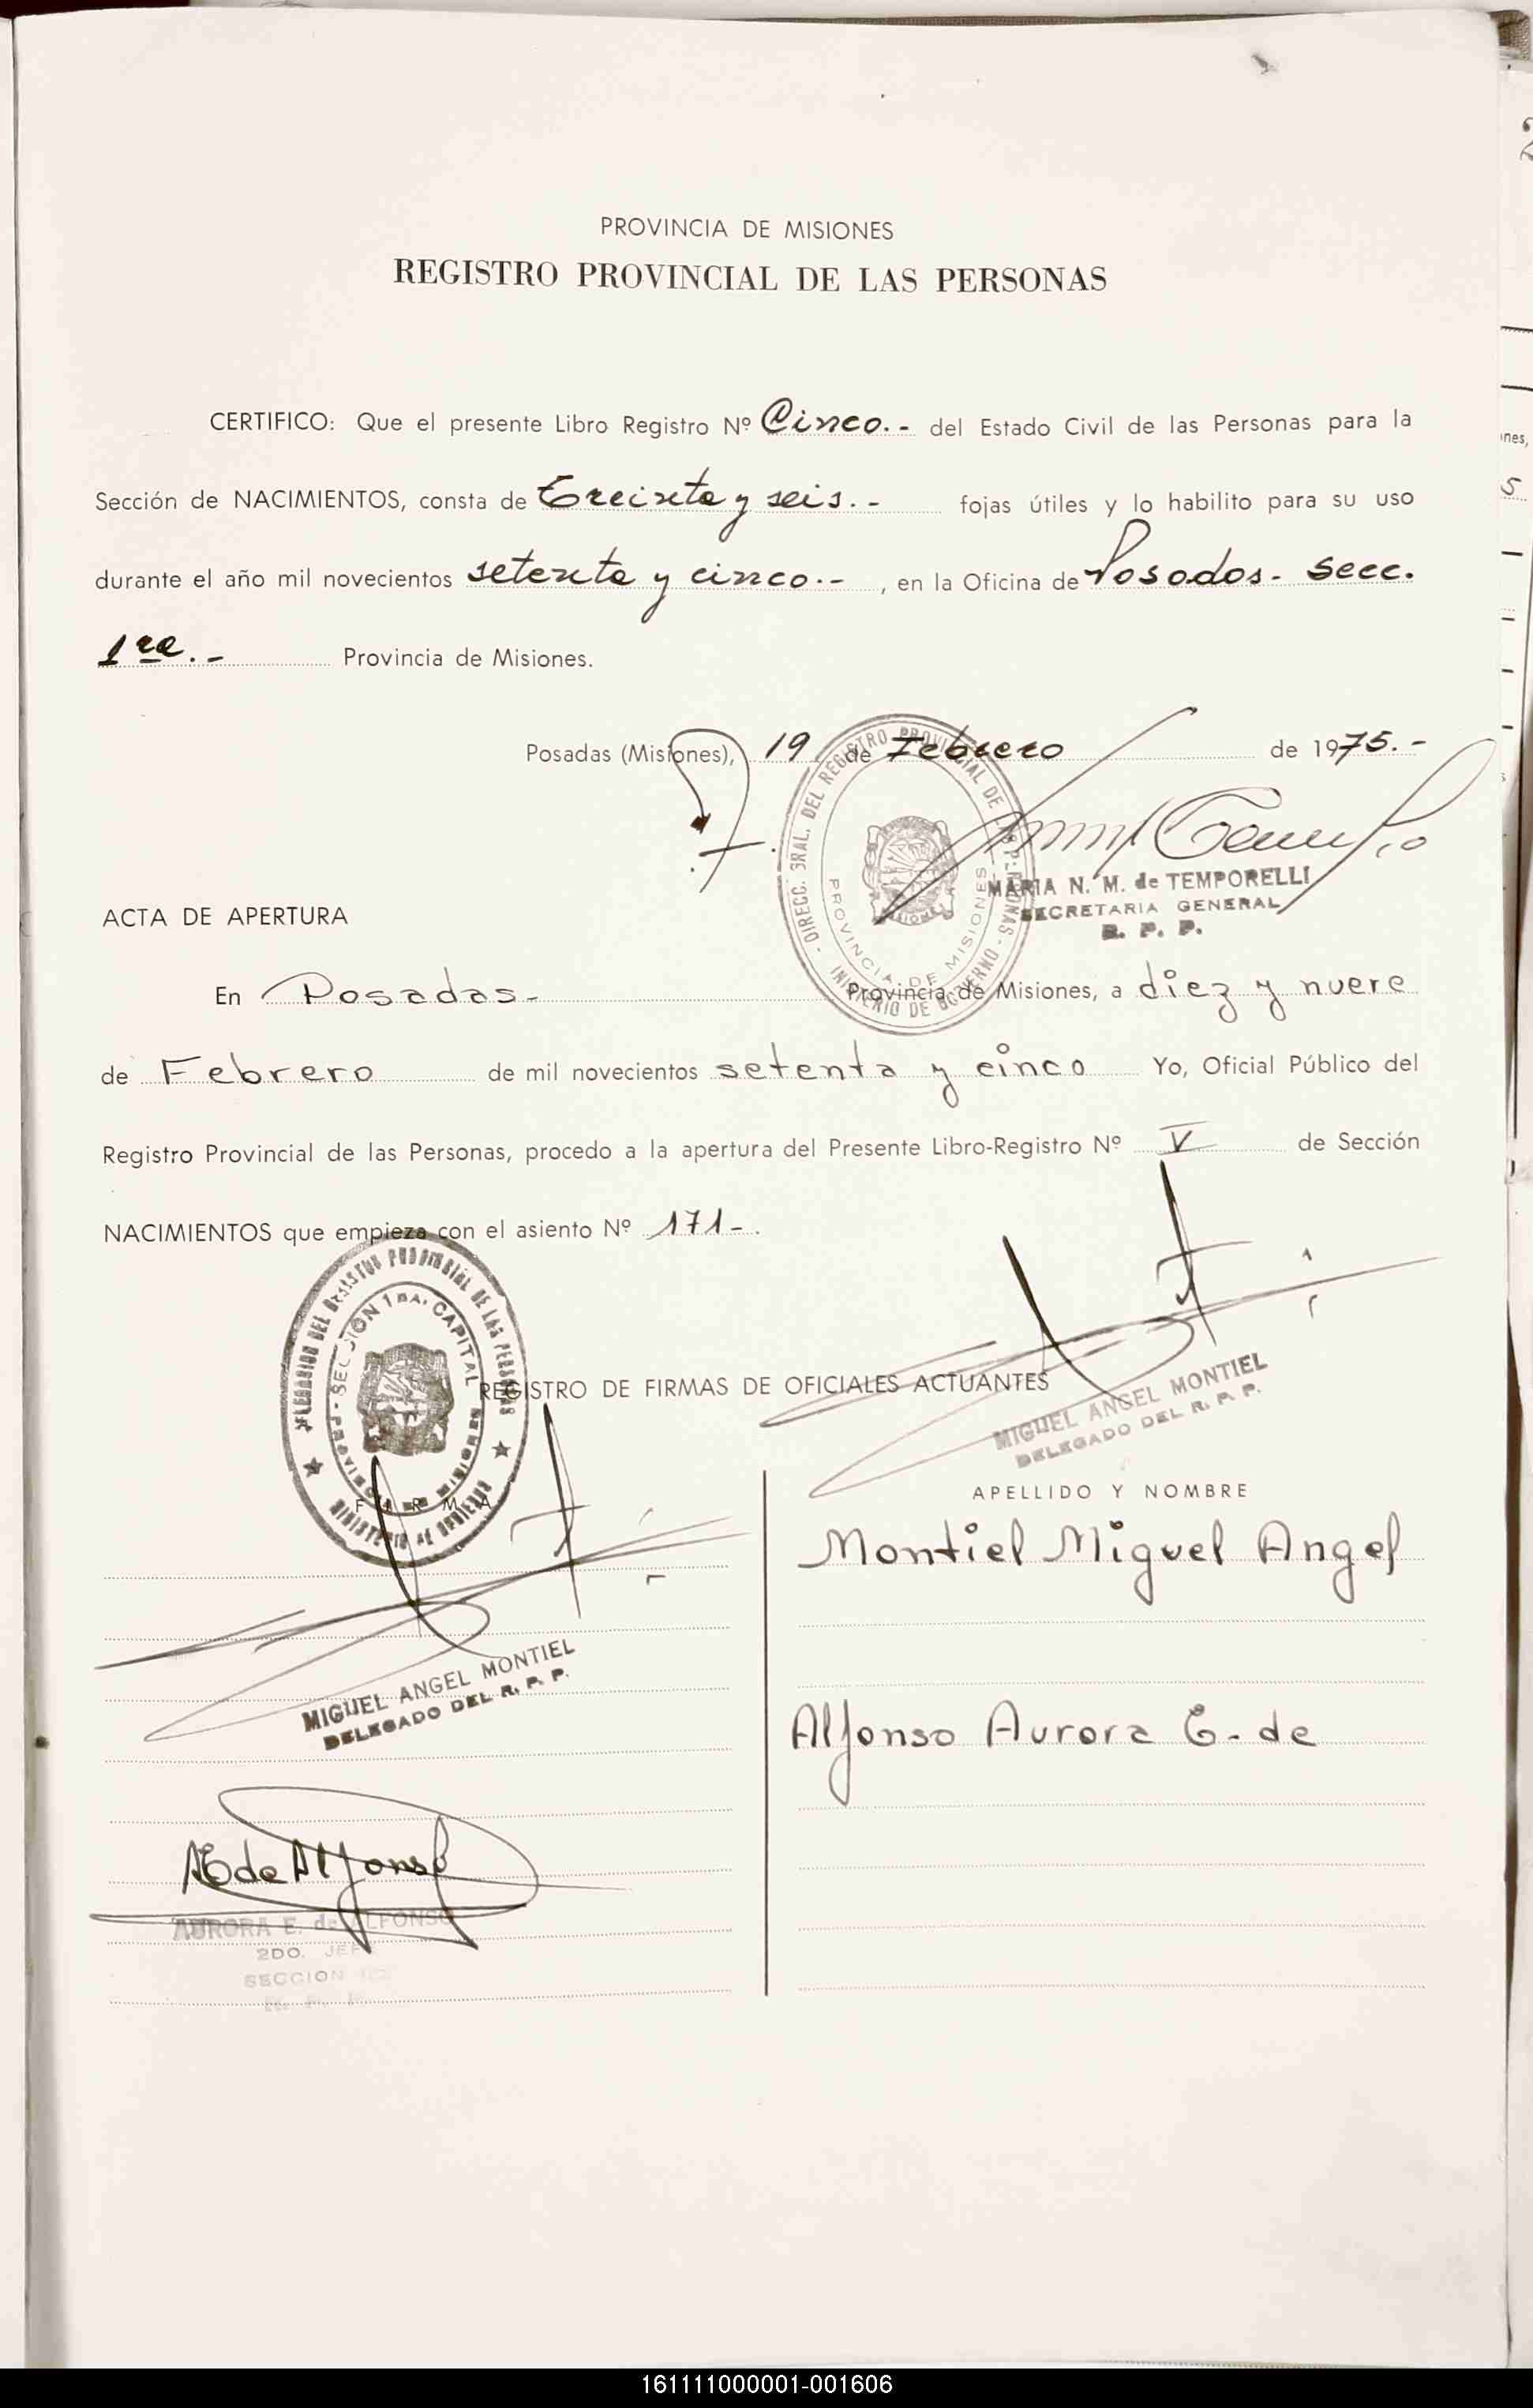 PROVINCIA DE MISIONES
REGISTRO PROVINCIAL DE LAS PERSONAS
CERTIFICO: Que el presente Libro Registro Nº Cinco.- del Estado Civil de las Personas para la
Sección de NACIMIENTOS, consta de Treinta y seis.- fojas útiles y lo habilito para su uso
durante el año mil novecientos setenta y cinco.- , en la Oficina de Posadas- Secc.
1ra.- Provincia de Misiones.
Posadas (Misiones), 19 de Febrero de 1975.-
MARIA N. M. de TEMPORELLI
SECRETARIA GENERAL
R. P. P.
DIRECC. GRAL. DEL REGISTRO PROVINCIAL DE LAS PERSONAS - MINISTERIO DE GOBIERNO -
PROVINCIA DE MISIONES
ACTA DE APERTURA
En Posadas- Provincia de Misiones, a diez y nueve
de Febrero de mil novecientos setenta y cinco Yo, Oficial Público del
Registro Provincial de las Personas, procedo a la apertura del Presente Libro-Registro Nº V de Sección
NACIMIENTOS que empieza con el asiento Nº 171-.
MIGUEL ANGEL MONTIEL
DELEGADO DEL R. P. P.
REGISTRO DE FIRMAS DE OFICIALES ACTUANTES
DEL REGISTRO PROVINCIAL DE LAS PERSONAS
SECCION 1RA. CAPITAL
FIRMA
APELLIDO Y NOMBRE
Montiel Miguel Angel
MIGUEL ANGEL MONTIEL
DELEGADO DEL R. P. P.
Alfonso Aurora E. de
AE de Alfonso
AURORA E. de ALFONSO
2DO. JEFE
SECCION
161111000001-001606